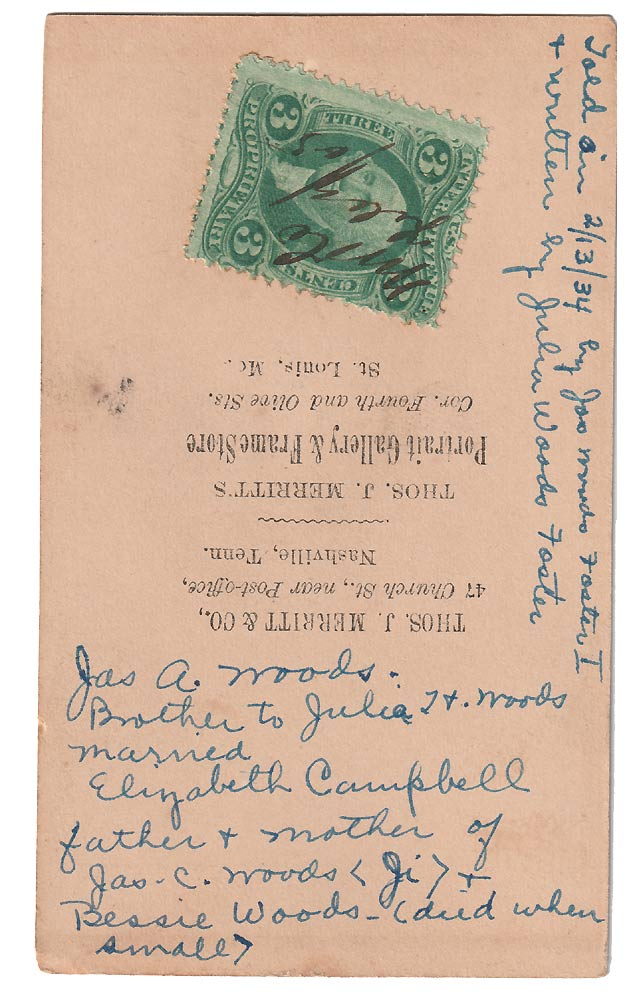 Told on 2/13/34 by Jas Woods Foster I
+ written by Julia Woods Foster
U.S. INTER. REVENUE
THREE
CENTS
PROPRIETARY
3
3
3
THOS. J. MERRITT & CO.,
47 Church St., near Post-office,
Nashville, Tenn.
THOS. J. MERRITT'S
Portrait Gallery & Frame Store
Cor. Fourth and Olive Sts.
St. Louis, Mo.
Jas A. Woods.
Brother to Julia H. Woods
married
Elizabeth Campbell
father + mother of
Jas. C. Woods (Ji) +
Bessie Woods - (died when
small)